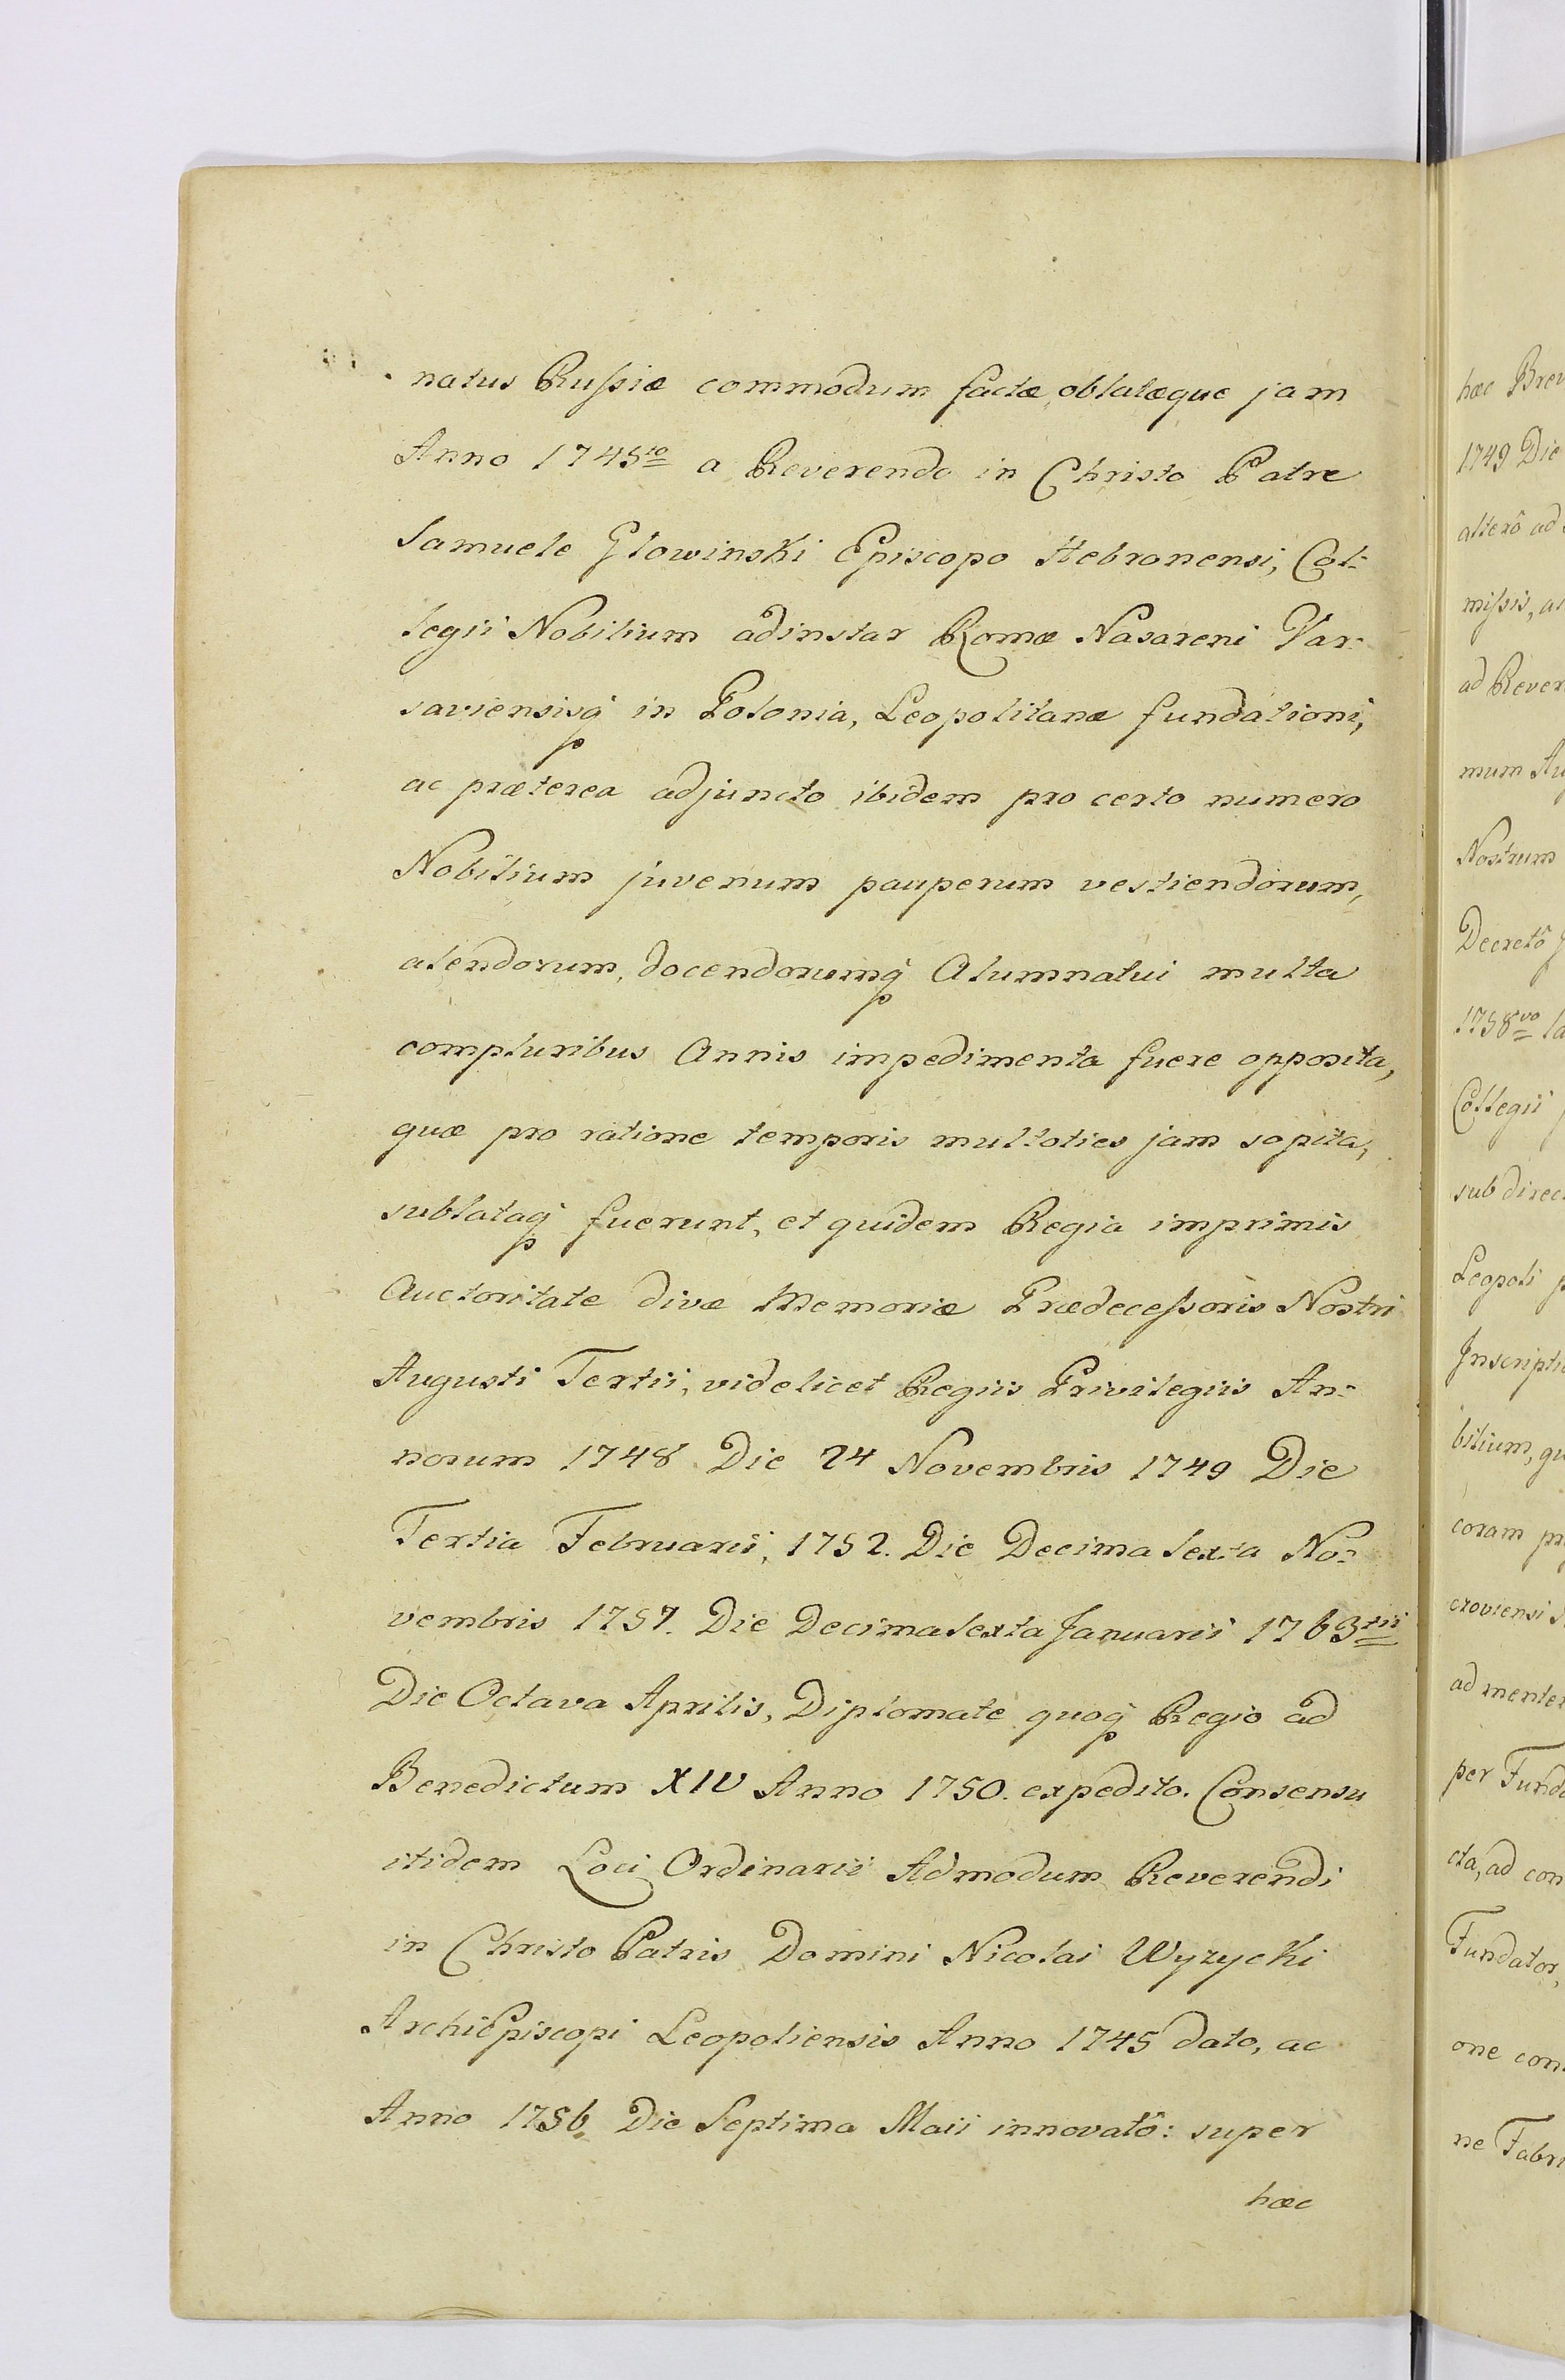 natus Russiæ commodum factæ, oblatæque jam
Anno 1745to a Reverendo in Christo Patre
Samuele Glowinski Episcopo Hebronensi, Col-
legii Nobilium adinstar Romæ Nasareni Var-
saviensisq in Polonia, Leopolitanæ fundationi,
ac præterea adjuncto ibidem pro certo numero
Nobilium juvenum pauperum vestiendorum,
alendorum, docendorumq Alumnatui multa
compluribus Annis impedimenta fuere opposita,
quæ pro ratione temporis multoties jam sopita,
sublataq fuerunt, et quidem Regia imprimis
Auctoritate divæ Memoriæ Prædecessoris Nostri
Augusti Tertii, videlicet Regiis Privilegiis An-
norum 1748 Die 24 Novembris 1749 Die
Tertia Februarii, 1752. Die Decima Sexta No-
vembris 1757. Die Decima Sexta Januarii 1763tii
Die Octava Aprilis, Diplomate quoq Regio ad
Benedictum XIV Anno 1750. expedito. Consensu
itidem Loci Ordinarii Admodum Reverendi
in Christo Patris Domini Nicolai Wyzycki
ArchiEpiscopi Leopoliensis Anno 1745 dato, ac
Anno 1756. Die Septima Maii innovatô: super
hæc
hæc
1749 Die
alterô ad
missis,
ad
mum
Nostrum
Decretô
1758vo
Collegii
sub
Leopoli
bilium,
coram
ad
per
cta, ad
Fundator,
one
ne